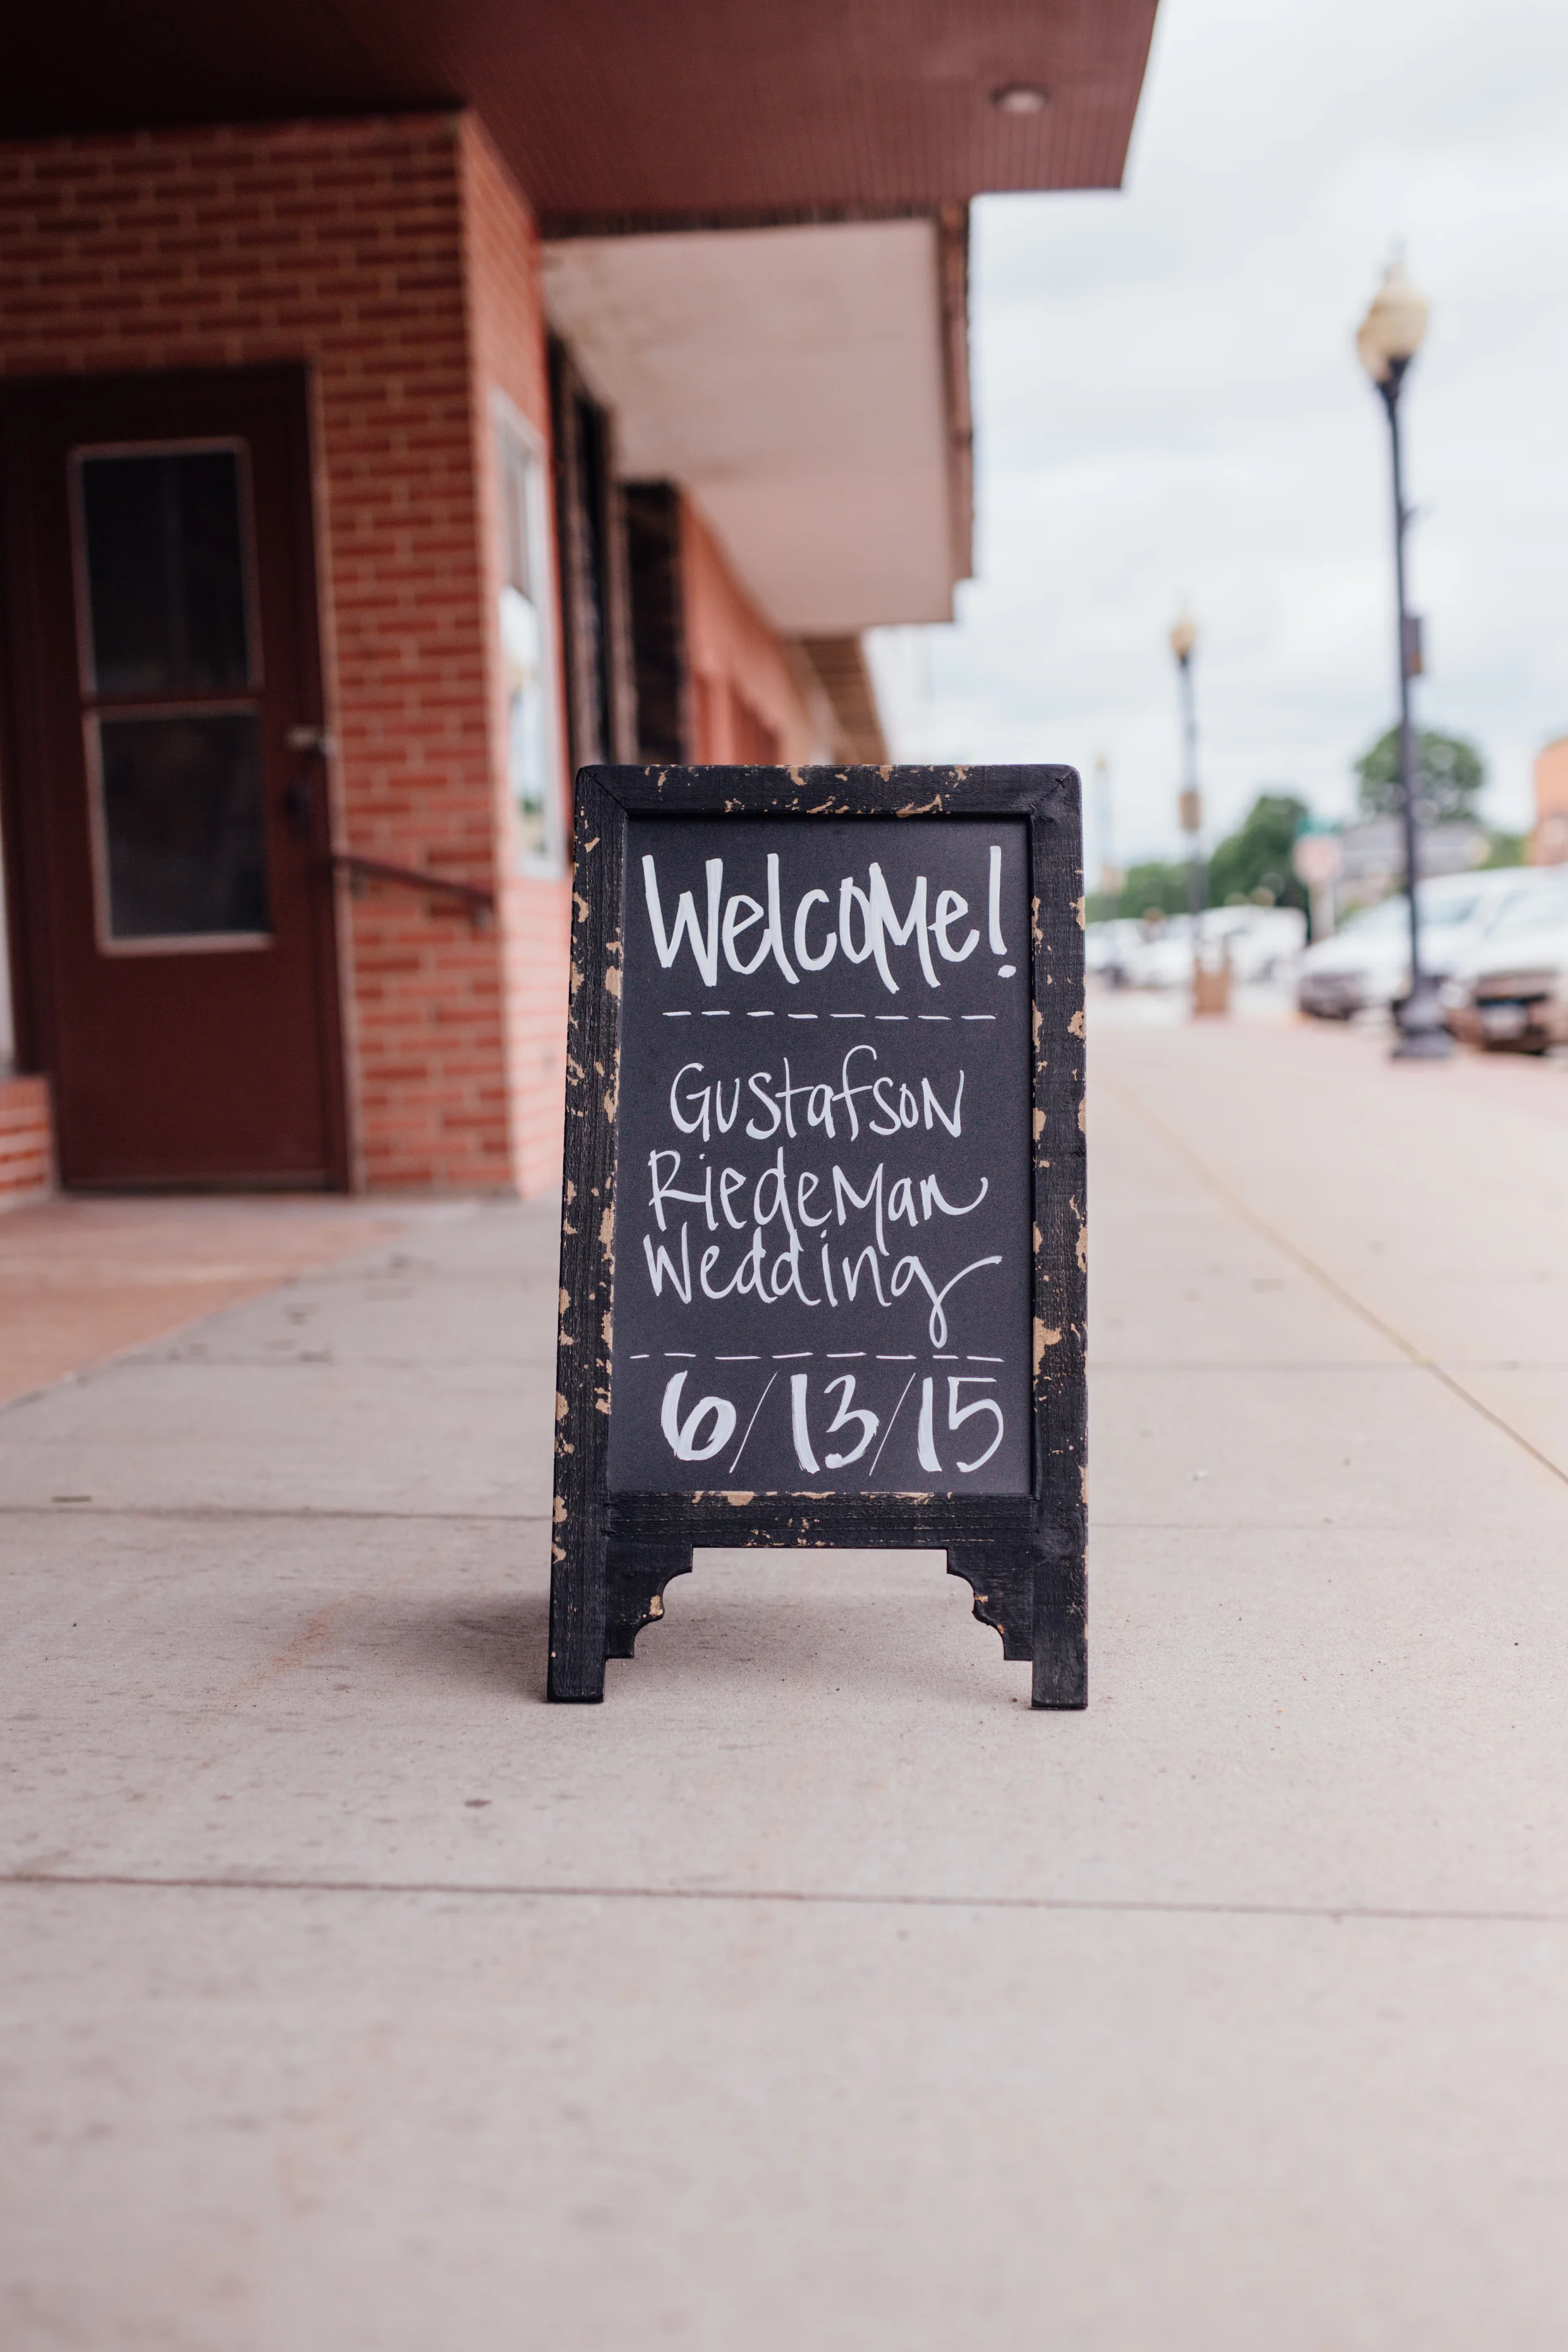 Welcome!
Gustafson
Riedeman
Wedding
6/13/15